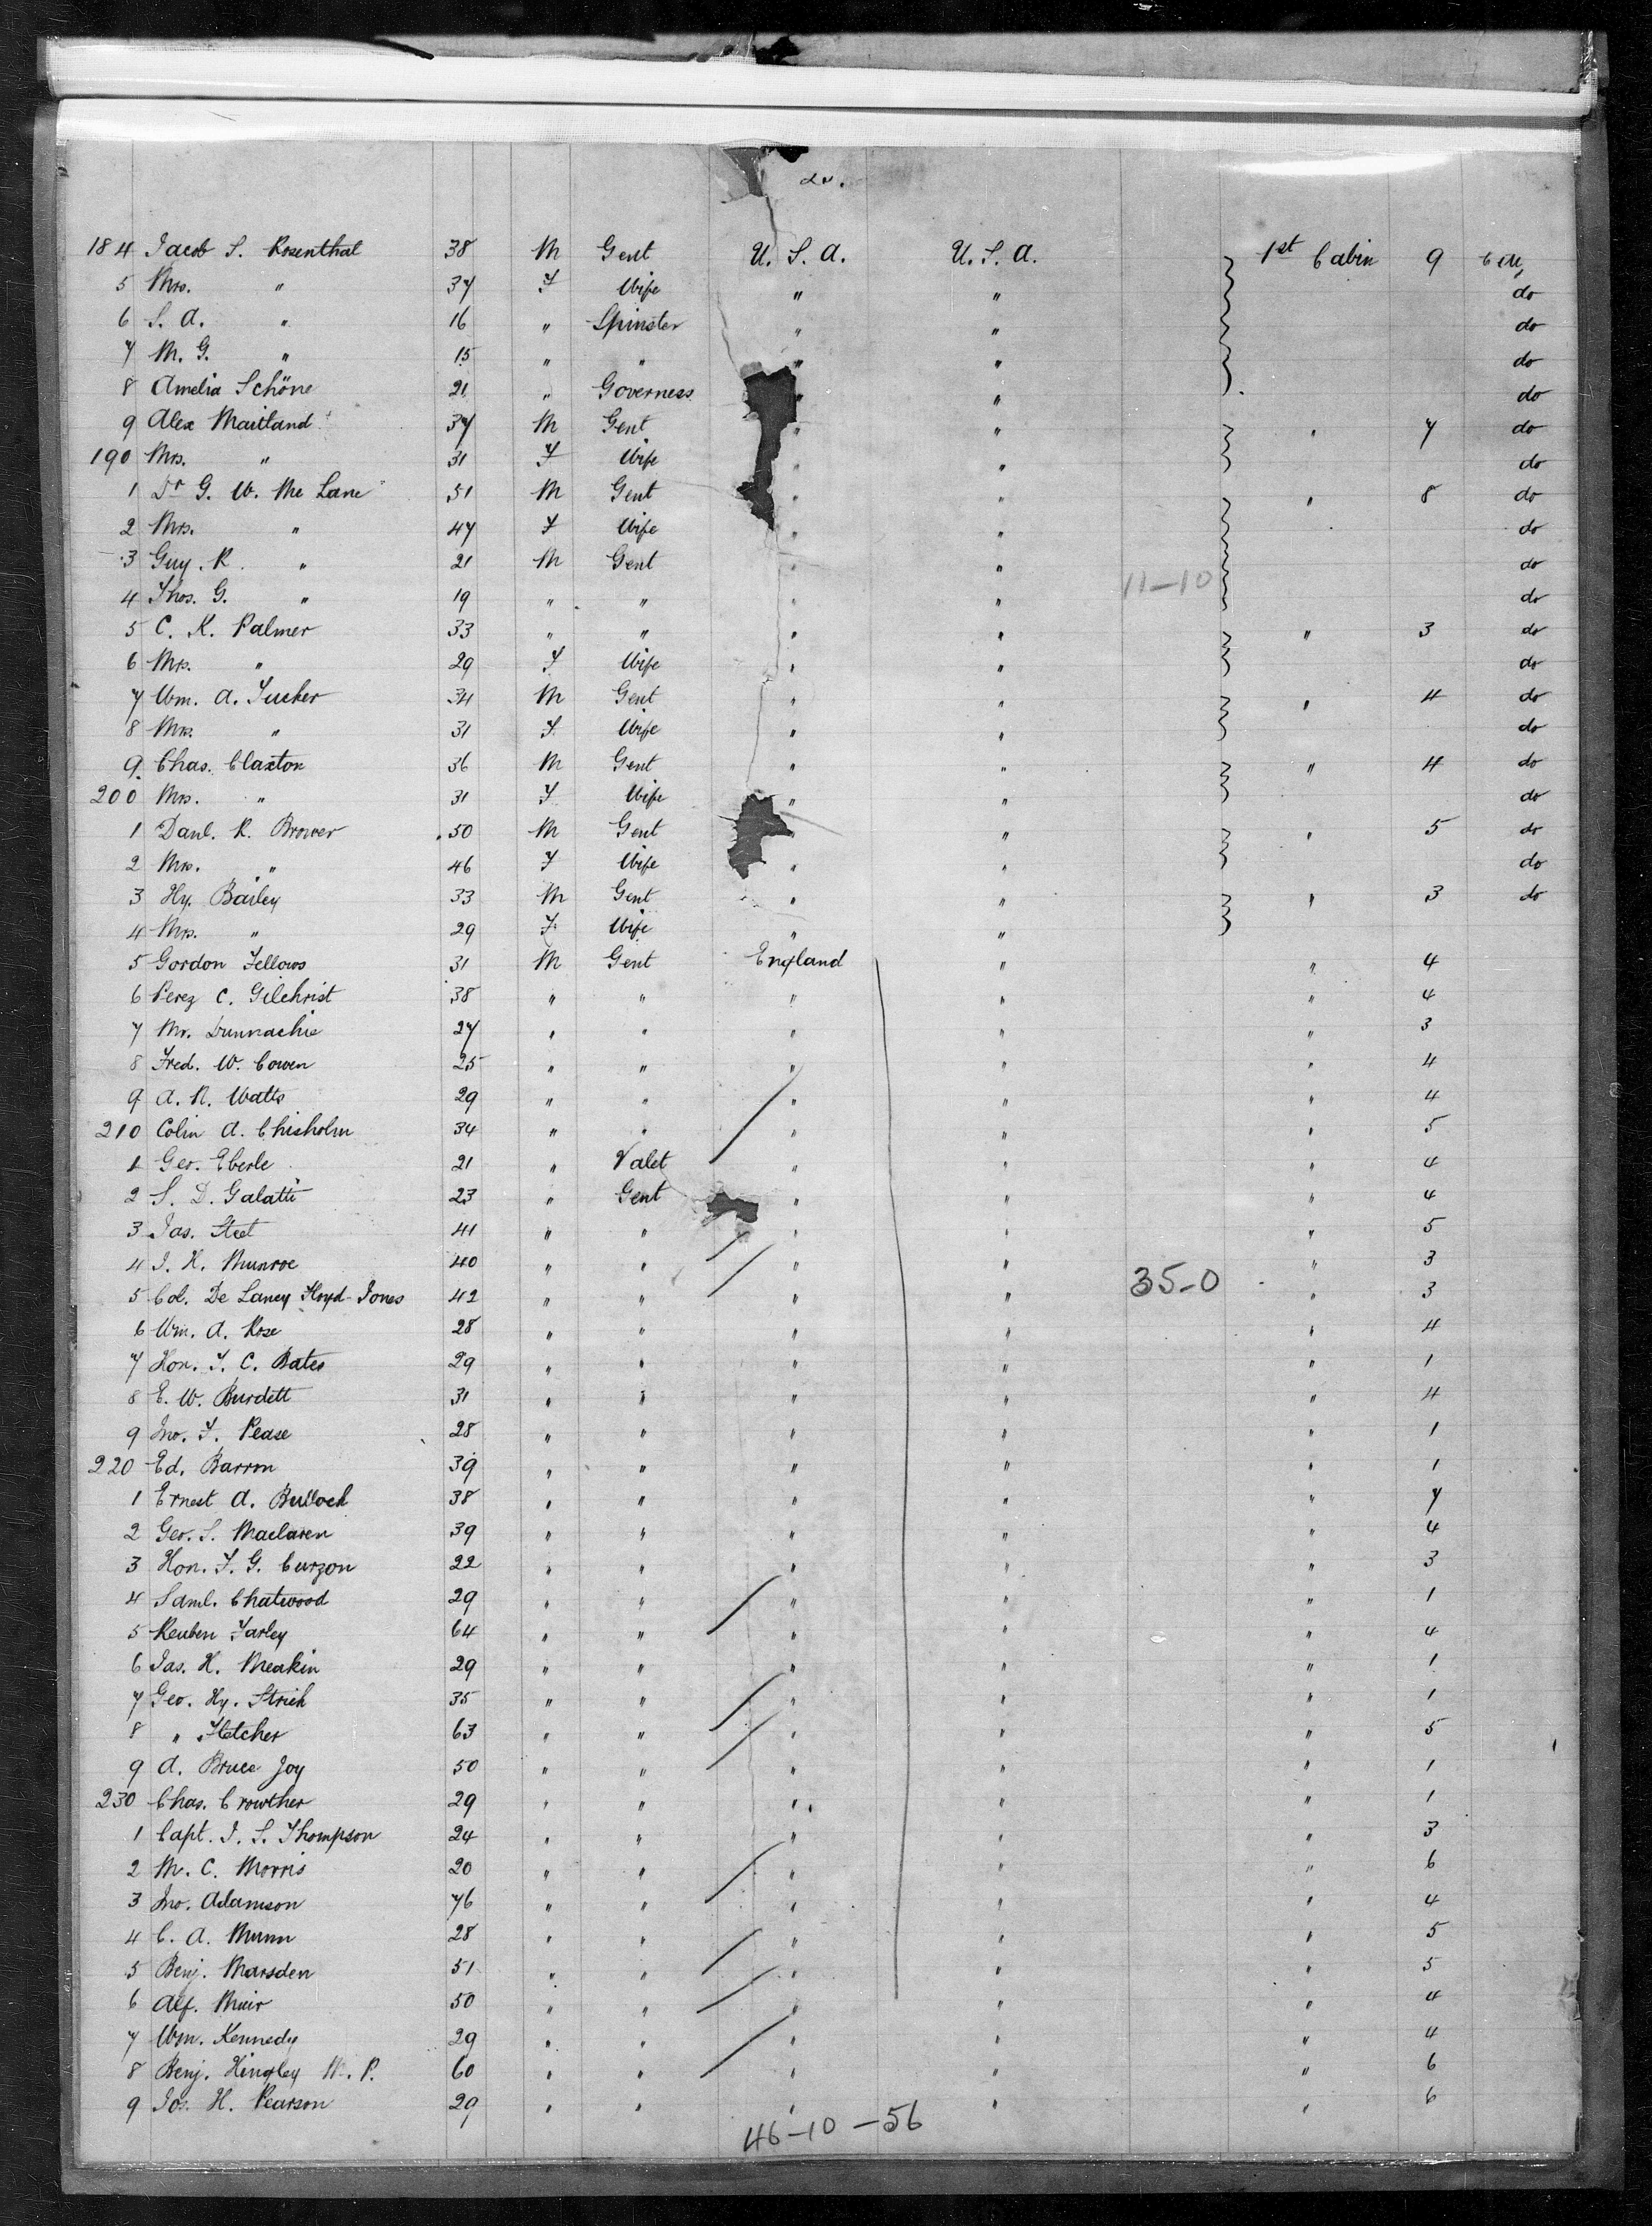 do.
184 Jacob S. Rosenthal 38 M Gent U. S. A. U. S. A. 1st Cabin 9
5 Mrs. " 37 F Wife " " do
6 S. A. " 16 " Spinster " " do
7 M. G. " 15 " " " " do
8 Amelia Schöne 21 " Governess " " do
9 Alex Maitland 37 M Gent " " " 7 do
190 Mrs. " 31 F Wife " " do
1 Dr G. W. Mc Lane 51 M Gent " " " 8 do
2 Mrs. " 47 F Wife " " do
3 Guy. R. " 21 M Gent " " do
4 Thos. G. " 19 " " " " 11-10 do
5 C. K. Palmer 33 " " " " " 3 do
6 Mrs. " 29 F Wife " " do
7 Wm. A. Tucker 34 M Gent " " " 4 do
8 Mrs. " 31 F. Wife " " do
9. Chas. Claxton 36 M Gent " " " 4 do
200 Mrs. " 31 F Wife " " do
1 Danl. R. Brower 50 M Gent " " 5 do
2 Mrs. " 46 F Wife " " do
3 Hy. Bailey 33 M Gent " " " 3 do
4 Mrs. " 29 F. Wife " "
5 Gordon Fellows 31 M Gent England " " 4
6 Perez C. Gilchrist 38 " " " " " 4
7 Mr. Dunnachie 27 " " " " " 3
8 Fred. W. Cowen 25 " " " " " 4
9 A. N. Watts 29 " " " " " 4
210 Colin A. Chisholm 34 " " " " " 5
1 Geo. Eberle 21 " Valet " " " 4
2 S. D. Galatti 23 " Gent " " " 4
3 Jas. Steet 41 " " " " " 5
4 J. H. Munroe 40 " " " " " 3
5 Col. De Lancy Floyd-Jones 42 " " " " 35-0 " 3
6 Wm. A. Rose 28 " " " " " 4
7 Hon. T. C. Bates 29 " " " " " 1
8 E. W. Burdett 31 " " " " " 4
9 Jno. F. Pease 28 " " " " " 1
220 Ed. Barron 39 " " " " " 1
1 Ernest A. Bullock 38 " " " " " 7
2 Geo. S. Maclaren 39 " " " " " 4
3 Hon. F. G. Curzon 22 " " " " " 3
4 Saml. Chatwood 29 " " " " " 1
5 Reuben Farley 64 " " " " " 4
6 Jas. H. Meakin 29 " " " " " 1
7 Geo. Hy. Strick 35 " " " " " 1
8 " Fletcher 63 " " " " " 5
9 A. Bruce Joy 50 " " " " " 1
230 Chas. Crowther 29 " " " " " 1
1 Capt. J. S. Thompson 24 " " " " " 3
2 M. C. Morris 20 " " " " " 6
3 Jno. Adamson 76 " " " " " 4
4 C. A. Munn 28 " " " " " 5
5 Benj. Marsden 51 " " " " " 5
6 Alf. Muir 50 " " " " " 4
7 Wm. Kennedy 29 " " " " " 4
8 Benj. Hingley M. P. 60 " " " " " 6
9 Jos. H. Pearson 29 " " " " " 6
46-10-56